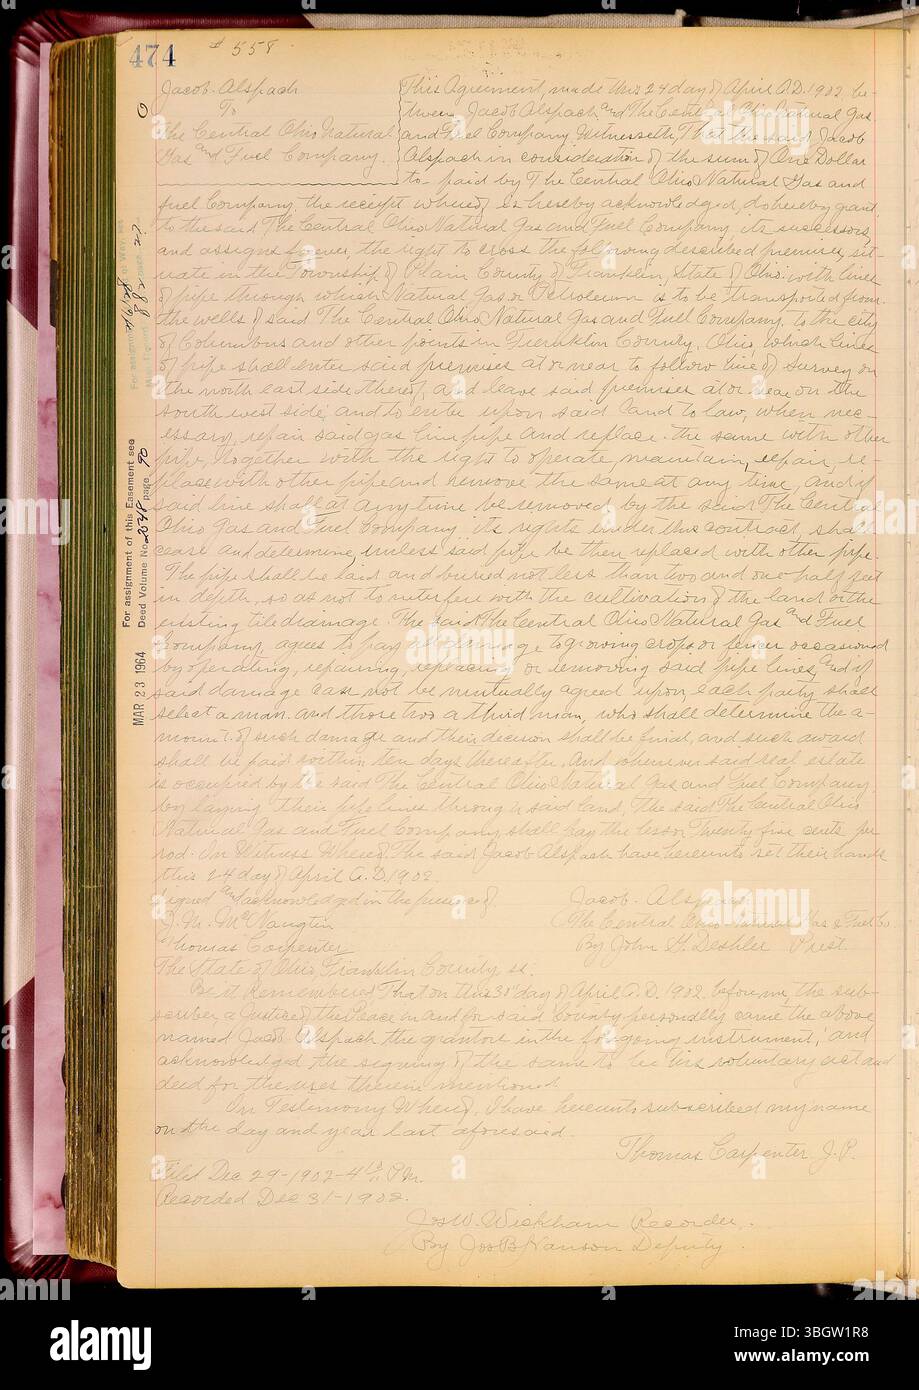 474
# 558
Jacob Alspach
To
The Central Ohio Natural
Gas and Fuel Company
This Agreement, made this 24 day of April A.D. 1902 be-
tween Jacob Alspach and The Central Ohio Natural Gas
and Fuel Company Witnesseth: That the said Jacob
Alspach in consideration of the sum of One Dollar
to paid by The Central Ohio Natural Gas and
Fuel Company, the receipt whereof is hereby acknowledged, do hereby grant
to the said The Central Ohio Natural Gas and Fuel Company its successors
and assigns forever, the right to cross the following described premises, sit-
uate in the Township of Plain County of Franklin, State of Ohio: with lines
of pipe through which Natural Gas or Petroleum is to be transported from
the wells of said The Central Ohio Natural Gas and Fuel Company, to the city
of Columbus and other points in Franklin County, Ohio, which lines
of pipe shall enter said premises at or near to follow line of survey on
the north east side thereof, and leave said premises at or near on the
south west side, and to enter upon said land to law, when nec-
essary, repair said gas line pipe and replace the same with other
pipe, together with the right to operate, maintain, repair, re-
place with other pipe and remove the same at any time, and if
said line shall at any time be removed by the said The Central
Ohio Gas and Fuel Company its rights under this contract, shall
cease and determine, unless said pipe be then replaced with other pipe.
The pipe shall be laid and buried not less than two and one half feet
in depth, so as not to interfere with the cultivation of the land or the
existing tile drainage. The said The Central Ohio Natural Gas and Fuel
Company, agrees to pay all damage to growing crops or fences occasioned
by operating, repairing, replacing or removing said pipe lines, and if
said damage can not be mutually agreed upon, each party shall
select a man and those two a third man, who shall determine the a-
mount of such damage and their decision shall be final, and such award
shall be paid within ten days thereafter. And whenever said real estate
is occupied by the said The Central Ohio Natural Gas and Fuel Company
by laying their pipe lines through said land, the said The Central Ohio
Natural Gas and Fuel Company shall pay the lessor Twenty five cents per
rod. In Witness Whereof, The said Jacob Alspach have hereunto set their hands
this 24 day of April A.D. 1902.
Signed and acknowledged in the presence of
Jacob Alspach
J. M. McNaugten
The Central Ohio Natural Gas & Fuel Co.
Thomas Carpenter
By John G. Deshler Prest
The State of Ohio Franklin County, ss.
Be it Remembered That on this 30 day of April A.D. 1902, before me, the sub-
scriber, a Justice of the Peace in and for said County personally came the above
named Jacob Alspach the grantors in the foregoing instrument, and
acknowledged the signing of the same to be his voluntary act and
deed for the uses therein mentioned.
In Testimony Whereof, I have hereunto subscribed my name
on the day and year last aforesaid.
Thomas Carpenter J.P.
Filed Dec 29-1902-4 P.M.
Recorded Dec 31-1902.
Jos W. Wickham Recorder,
By Jos B. Nanson Deputy
For assignment of this Easement see
Deed Volume No. 2548 page 90
MAR 23 1964
alamy
Image ID: 3BGW1R8
www.alamy.com